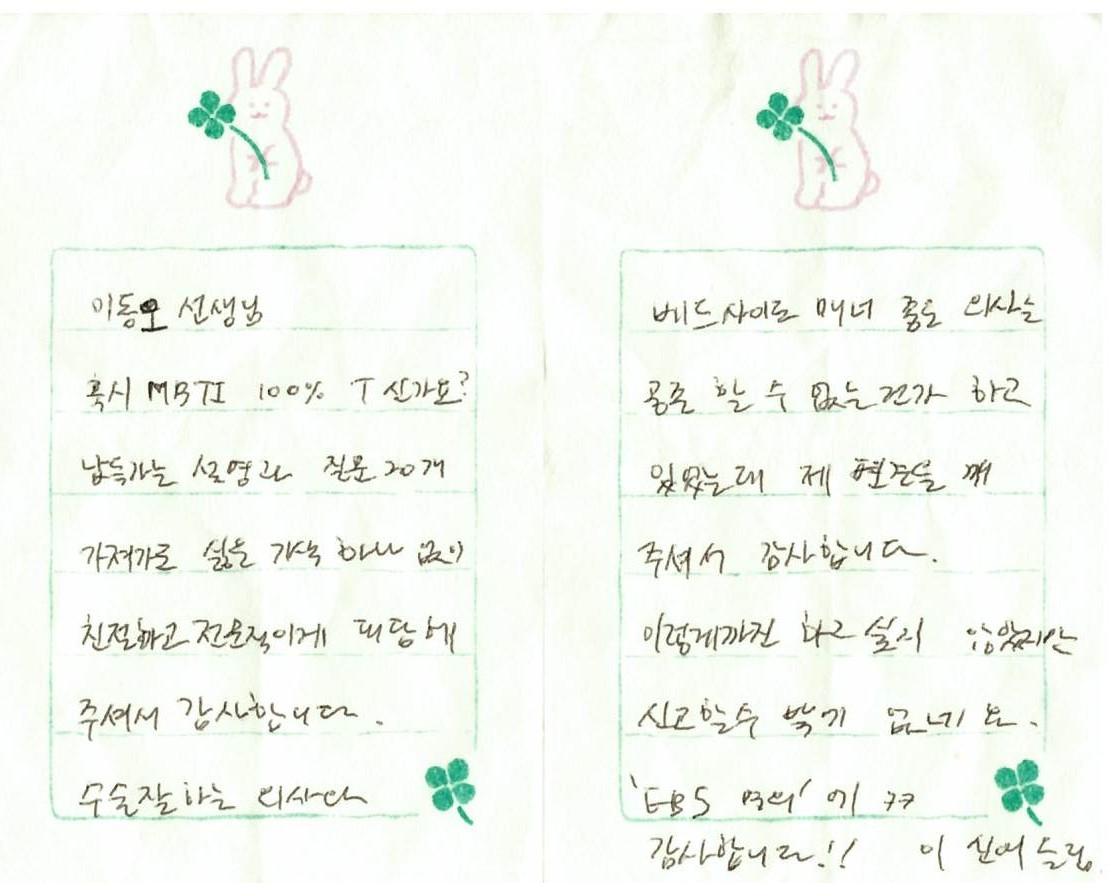 이동오 선생님
혹시 MBTI 100% T 신가요?
납득가는 설명과 질문 20개
가져가도 싫은 기색 하나 없이
친절하고 전문적이게 대답해
주셔서 감사합니다.
수술잘하는 의사와
베드사이드 매너 좋은 의사는
공존 할 수 없는건가 하고
있었는데 제 편견을 깨
주셔서 감사합니다.
이렇게까진 하고 싶지 않았지만
신고할수 밖에 없네요.
'EBS 명의'에 ㅋㅋ
감사합니다!! 이 드림.